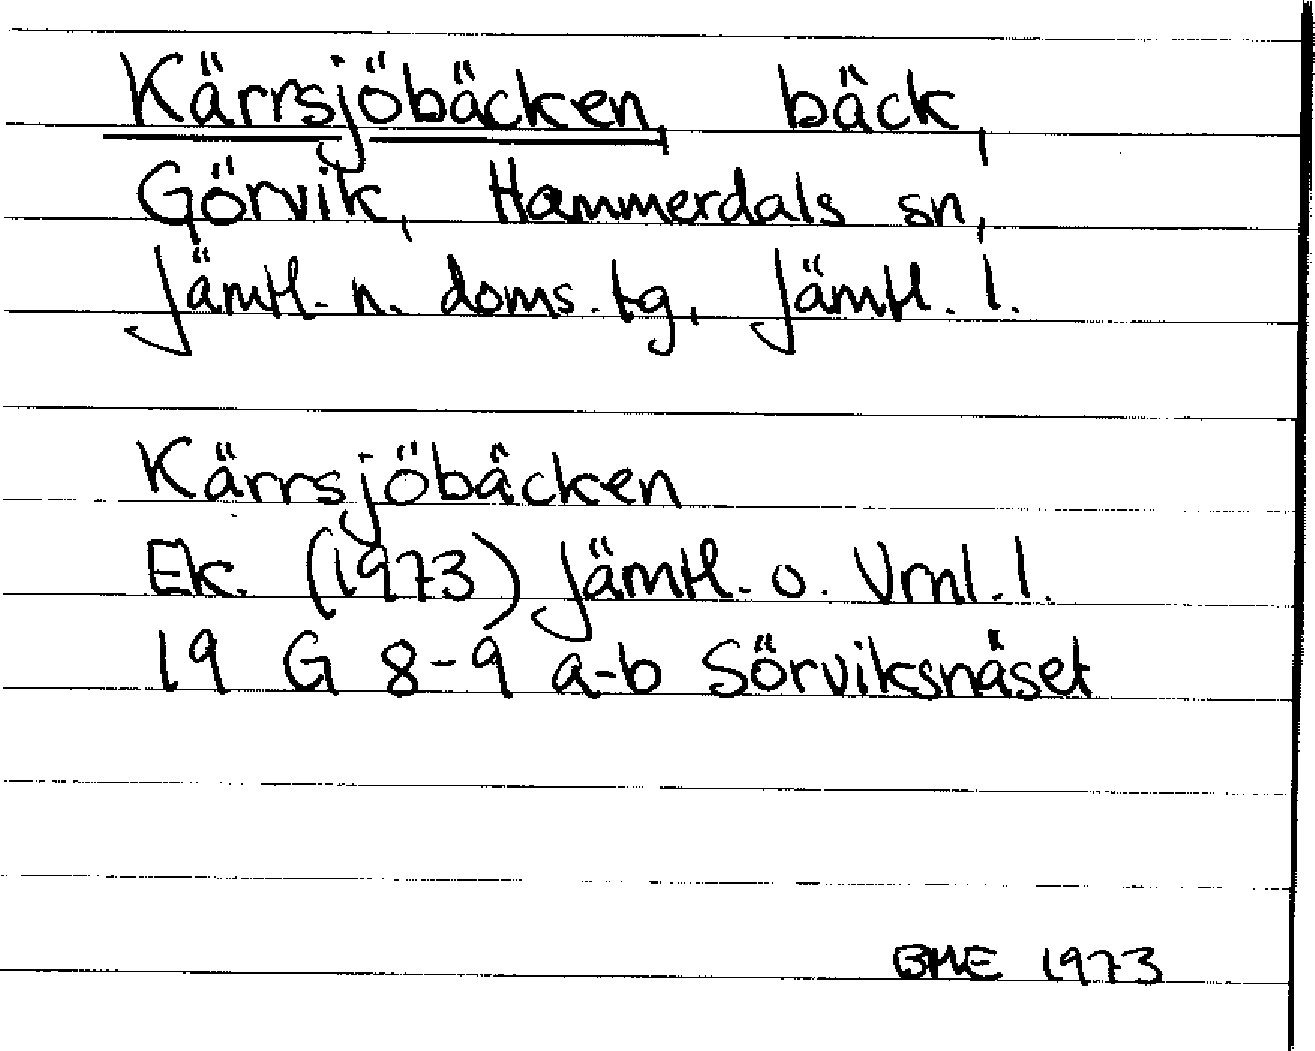 Kärrsjöbäcken, bäck,
Görvik, Hammerdals sn,
Jämtl. n. doms. tg, Jämtl. l.
Kärrsjöbäcken
Ek. (1973) Jämtl. o. Vrnl. l.
19 G 8-9 a-b Sörviksnäset
BME 1973